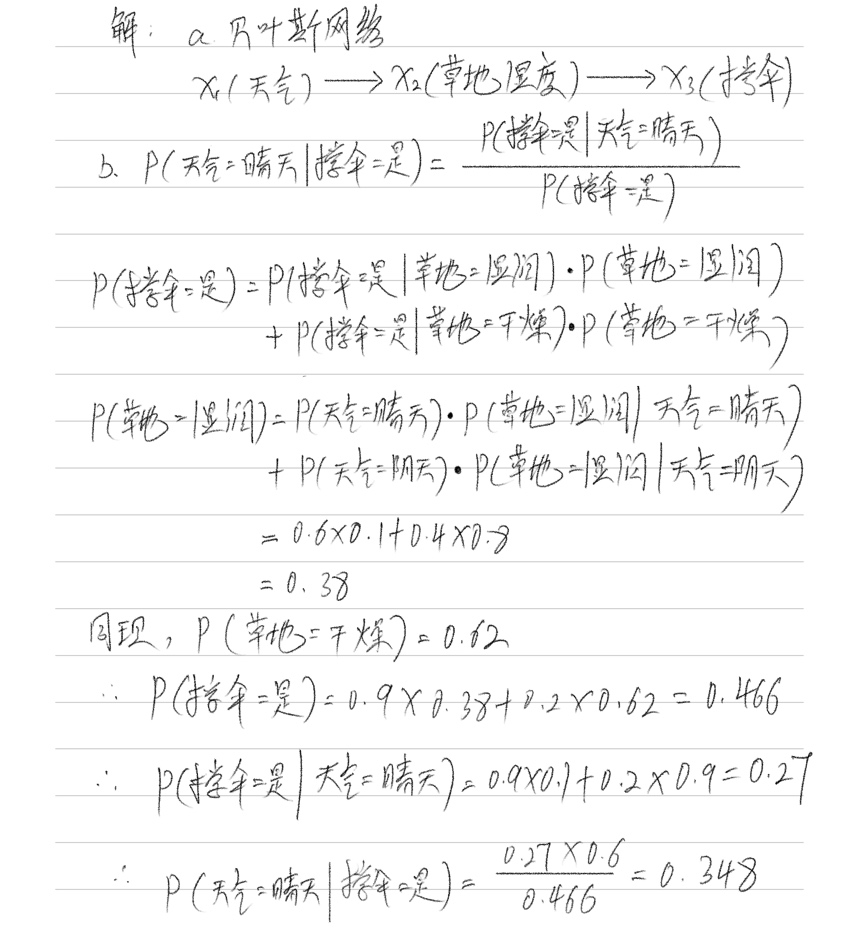 解: a. 贝叶斯网络
X₁(天气) → X₂(草地湿度) → X₃(撑伞)
b. P(天气=晴天|撑伞=是) = P(撑伞=是|天气=晴天) / P(撑伞=是)
P(撑伞=是) = P(撑伞=是|草地=湿润)·P(草地=湿润)
+ P(撑伞=是|草地=干燥)·P(草地=干燥)
P(草地=湿润) = P(天气=晴天)·P(草地=湿润|天气=晴天)
+ P(天气=阴天)·P(草地=湿润|天气=阴天)
= 0.6×0.1+0.4×0.8
= 0.38
同理, P(草地=干燥) = 0.62
∴ P(撑伞=是) = 0.9×0.38+0.2×0.62 = 0.466
∴ P(撑伞=是|天气=晴天) = 0.9×0.1+0.2×0.9 = 0.27
∴ P(天气=晴天|撑伞=是) = 0.27×0.6 / 0.466 = 0.348